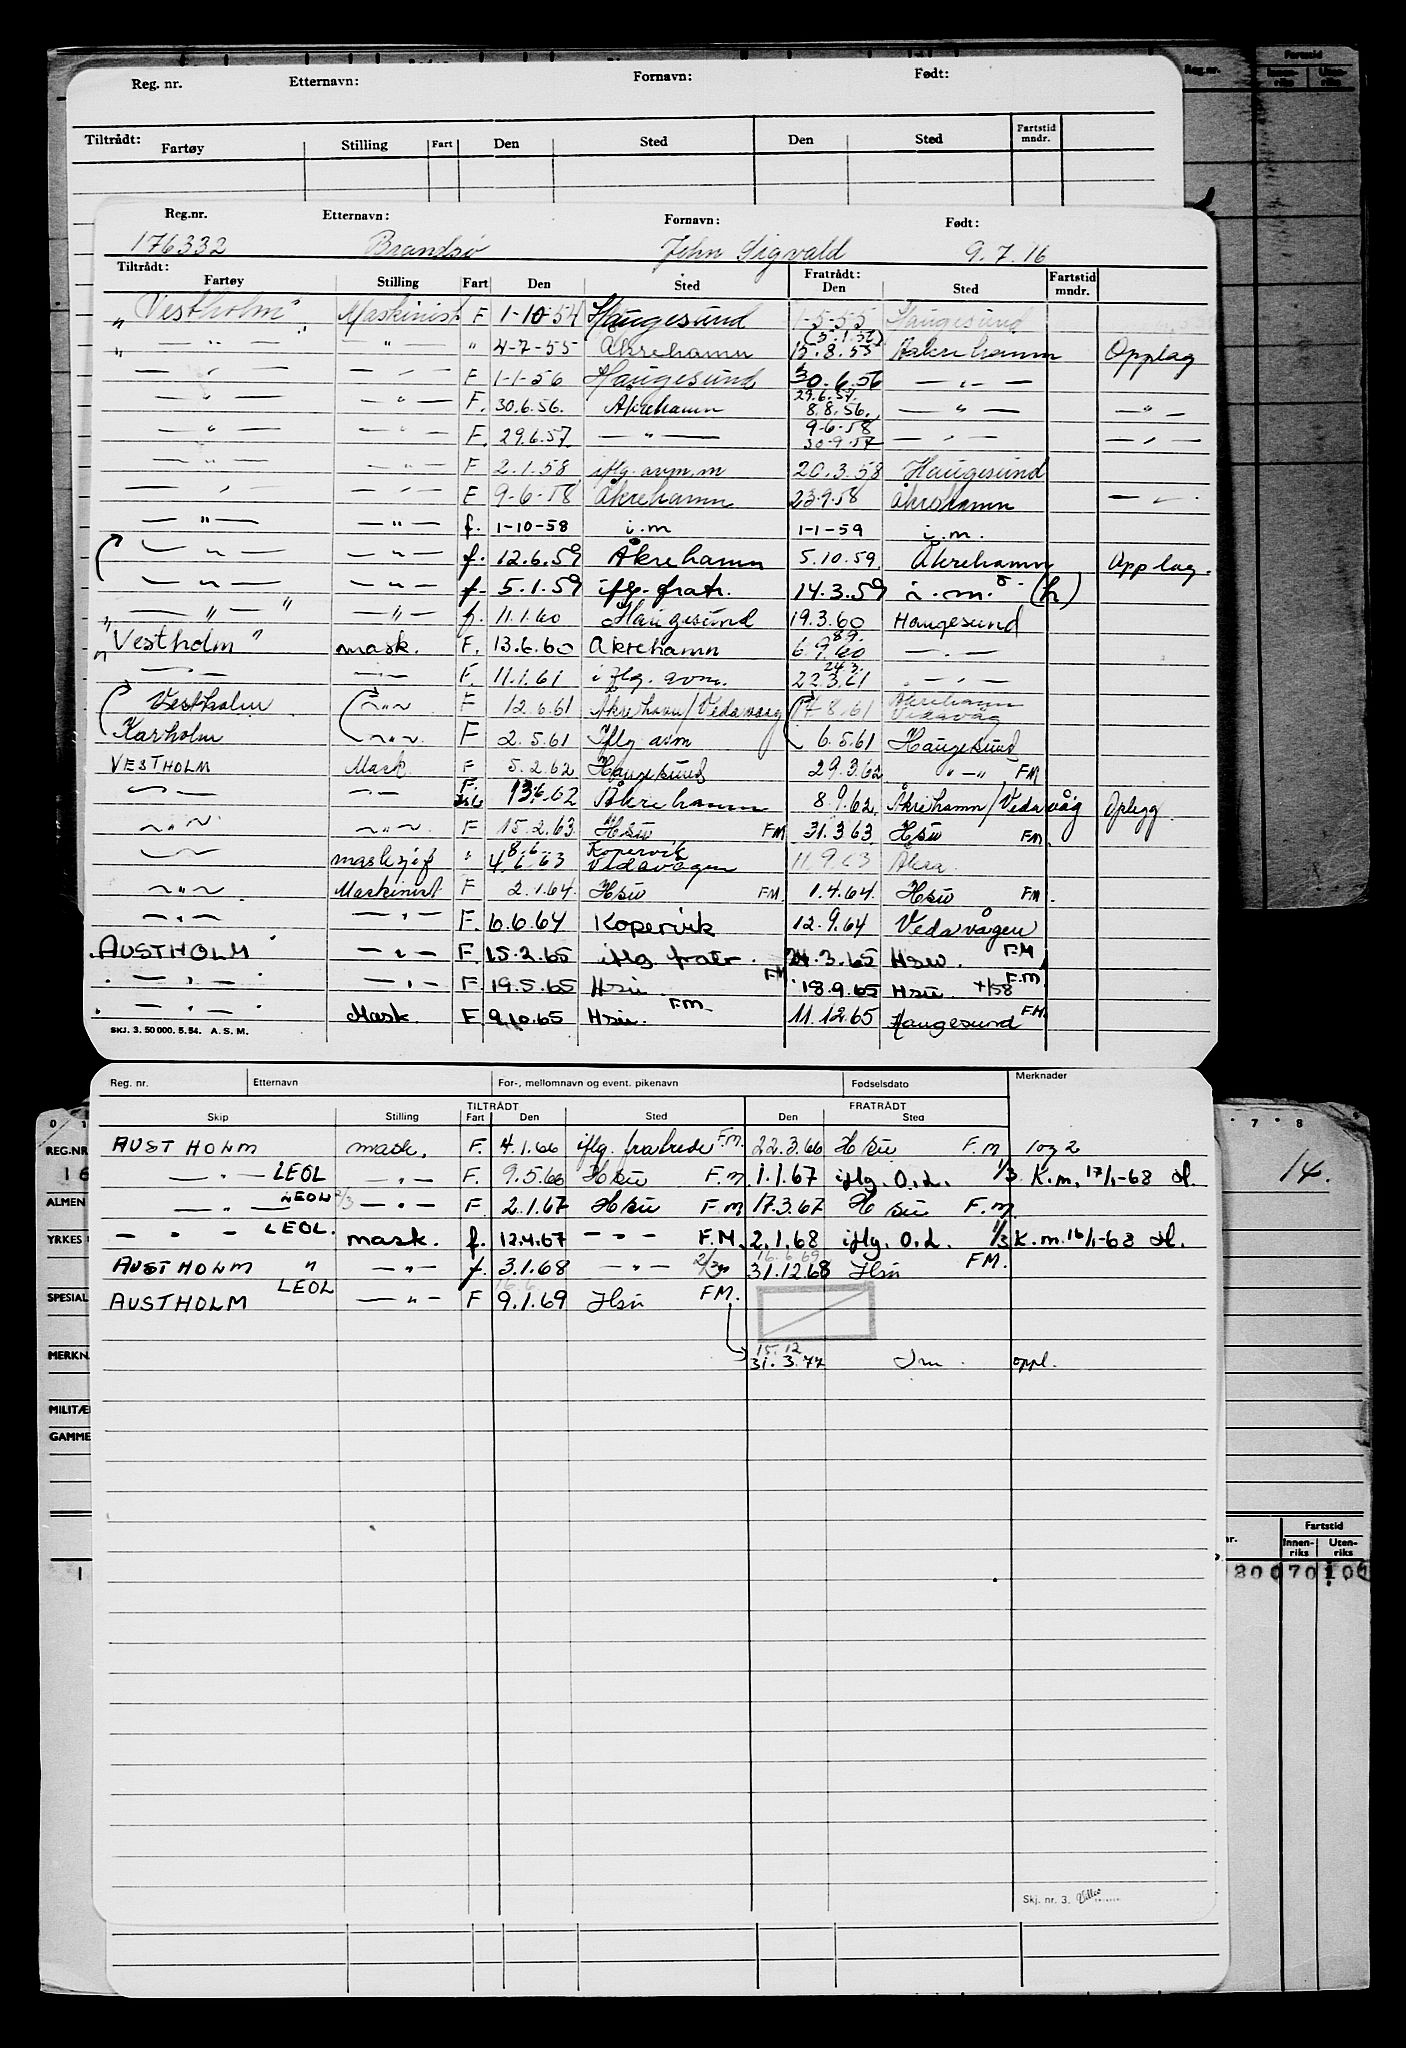 Reg. nr. Etternavn: Fornavn: Født:
Tiltrådt: Fartøy Stilling Fart Den Sted Den Sted Fartstid mndr.
Reg.nr. Etternavn: Fornavn: Født:
176332 Brandsø John Sigvald 9.7.16
Tiltrådt: Fratrådt: Fartstid
Fartøy Stilling Fart Den Sted Den Sted mndr.
"Vestholm" Maskinist F 1-10-54 Haugesund 1-5-55 Haugesund
" — " — — " — " 4-7-55 Åkrehamn (5.1.56) 15.8.55 Aakrehamn Opplag
— " — — " — F 1-1-56 Haugesund 30.6.56 — " —
— " — — " — F. 30.6.56. Åkrehamn 29.6.57. 8.8.56. — " — — " —
— " — — " — F. 29.6.57 — " — 9-6-58 30.9.57 — " — — " —
— " — — " — F 2.1.58 iflg. avm.m 20.3.58 Haugesund
— " — — " — F 9-6-58 Åkrehamn 23.9.58 Åkrehamn — " —
— " — — " — f. 1-10-58 i.m 1-1-59 i.m.
— " — — " — f. 12.6.59 Åkrehamn 5.10.59. Åkrehamn Opplag.
— " — — " — f. 5.1.59 iflg. fratr. 14.3.59 i.m. (h)
" — " — " — " — f. 11.1.60 Haugesund 19.3.60 Haugesund
"Vestholm" mask. F. 13.6.60 Åkrehamn 8.9. 6.9.60 — " —
— " — — " — F. 11.1.61 iflg. avm. 24.3. 22.3.61 — " —
Vestholm — " — F 12.6.61 Åkrehavn/Vedavaag 17.8.61 Åkrehamn Vedavåg
Karholm — " — F 2.5.61 Iflg avm 6.5.61 Haugesund
VESTHOLM Mask F 5.2.62 Haugesund 29.3.62 " — " FM
— " — — " — F. 13.6.62 Åkrehamn 8.9.62. Åkrehamn/Vedavåg Oplegg
— " — — " — F 15.2.63. Hsu FM 31.3.63. Hsu FM.
— " — maskinsjef " 8.6. 4.6.63 Kopervik Vedavågen 11.9.63 Åkra
— " — Maskinist F 2.1.64. Hsu FM 1.4.64. Hsu FM.
— " — — " — F. 6.6.64 Kopervik 12.9.64 Vedavågen
AUSTHOLM — " — F. 15.2.65 iflg fratr. 24.3.65 Hsu. F.M
— " — — " — F. 19.5.65 Hsu. FM 18.9.65 Hsu +/58 F.M.
— " — Mask. F. 9.10.65 Hsu. FM. 11.12.65 Haugesund FM.
SKJ. 3. 50 000. 5. 54. A.S.M.
Reg. nr. Etternavn For-, mellomnavn og event. pikenavn Fødselsdato Merknader
TILTRÅDT FRATRÅDT
Skip Stilling Fart Den Sted Den Sted
AUSTHOLM mask. F. 4.1.66 iflg. fratrede F.M. 22.3.66 Hsu F.M 1 og 2
— " — LEOL — " — F. 9.5.66 Hsu F.M 1.1.67 iflg. O.L. 1/3 K.m. 17/1-68 H.
— " — LEOL 2/3 — " — F 2.1.67 Hsu F.M 17.3.67 Hsu F.M.
— " — LEOL. mask. f. 12.4.67 — " — F.M. 2.1.68 iflg. O.L. 1/3 K.m. 16/1-68 H.
AUSTHOLM " — " — f. 3.1.68 — " — 16.6.69 31.12.68 Hsu FM.
AUSTHOLM LEOL — " — F 9.1.69 Hsu FM.
15.12 31.3.77 Im. oppl.
Skj. nr. 3.
Reg.nr. Fartstid Innenriks Utenriks
0 1 7 8
REG.NR
16 14.
ALMEN
YRKES
SPESIAL
MERKN.
MILITÆ
GAMME
Fartstid
nr. Innenriks Utenriks
1